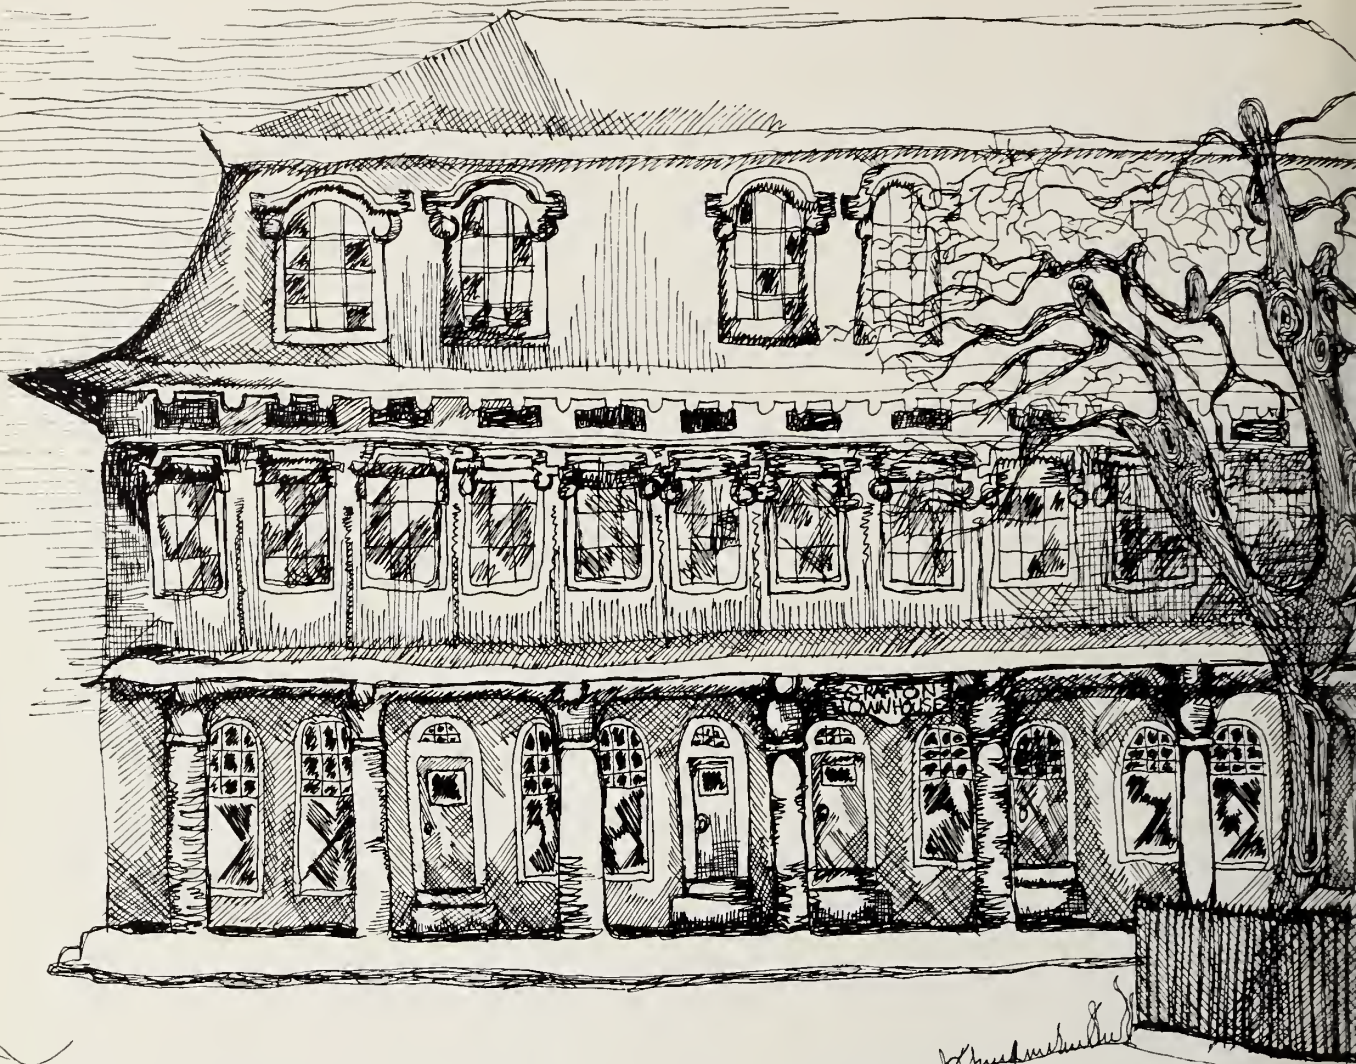 GRAFTON
TOWNHOUSE